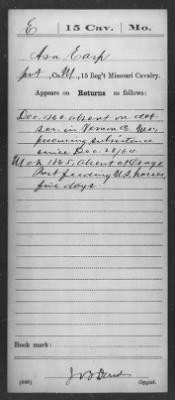 E | 15 Cav. | Mo.
Asa Earp
Pvt, Co. M, 15 Reg't Missouri Cavalry.
Appears on Returns as follows:
Dec. 1864 Absent on det
ser. in Vernon Co. Mo.
procuring subsistence
since Dec. 28/64.
Mch 1865, Absent at Osage
Post feeding U.S. horses,
five days.
Book mark:
(660)
Copyist.